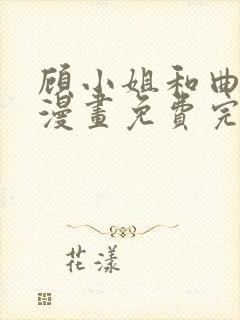 顾小姐和曲
漫畫免費完
花漾